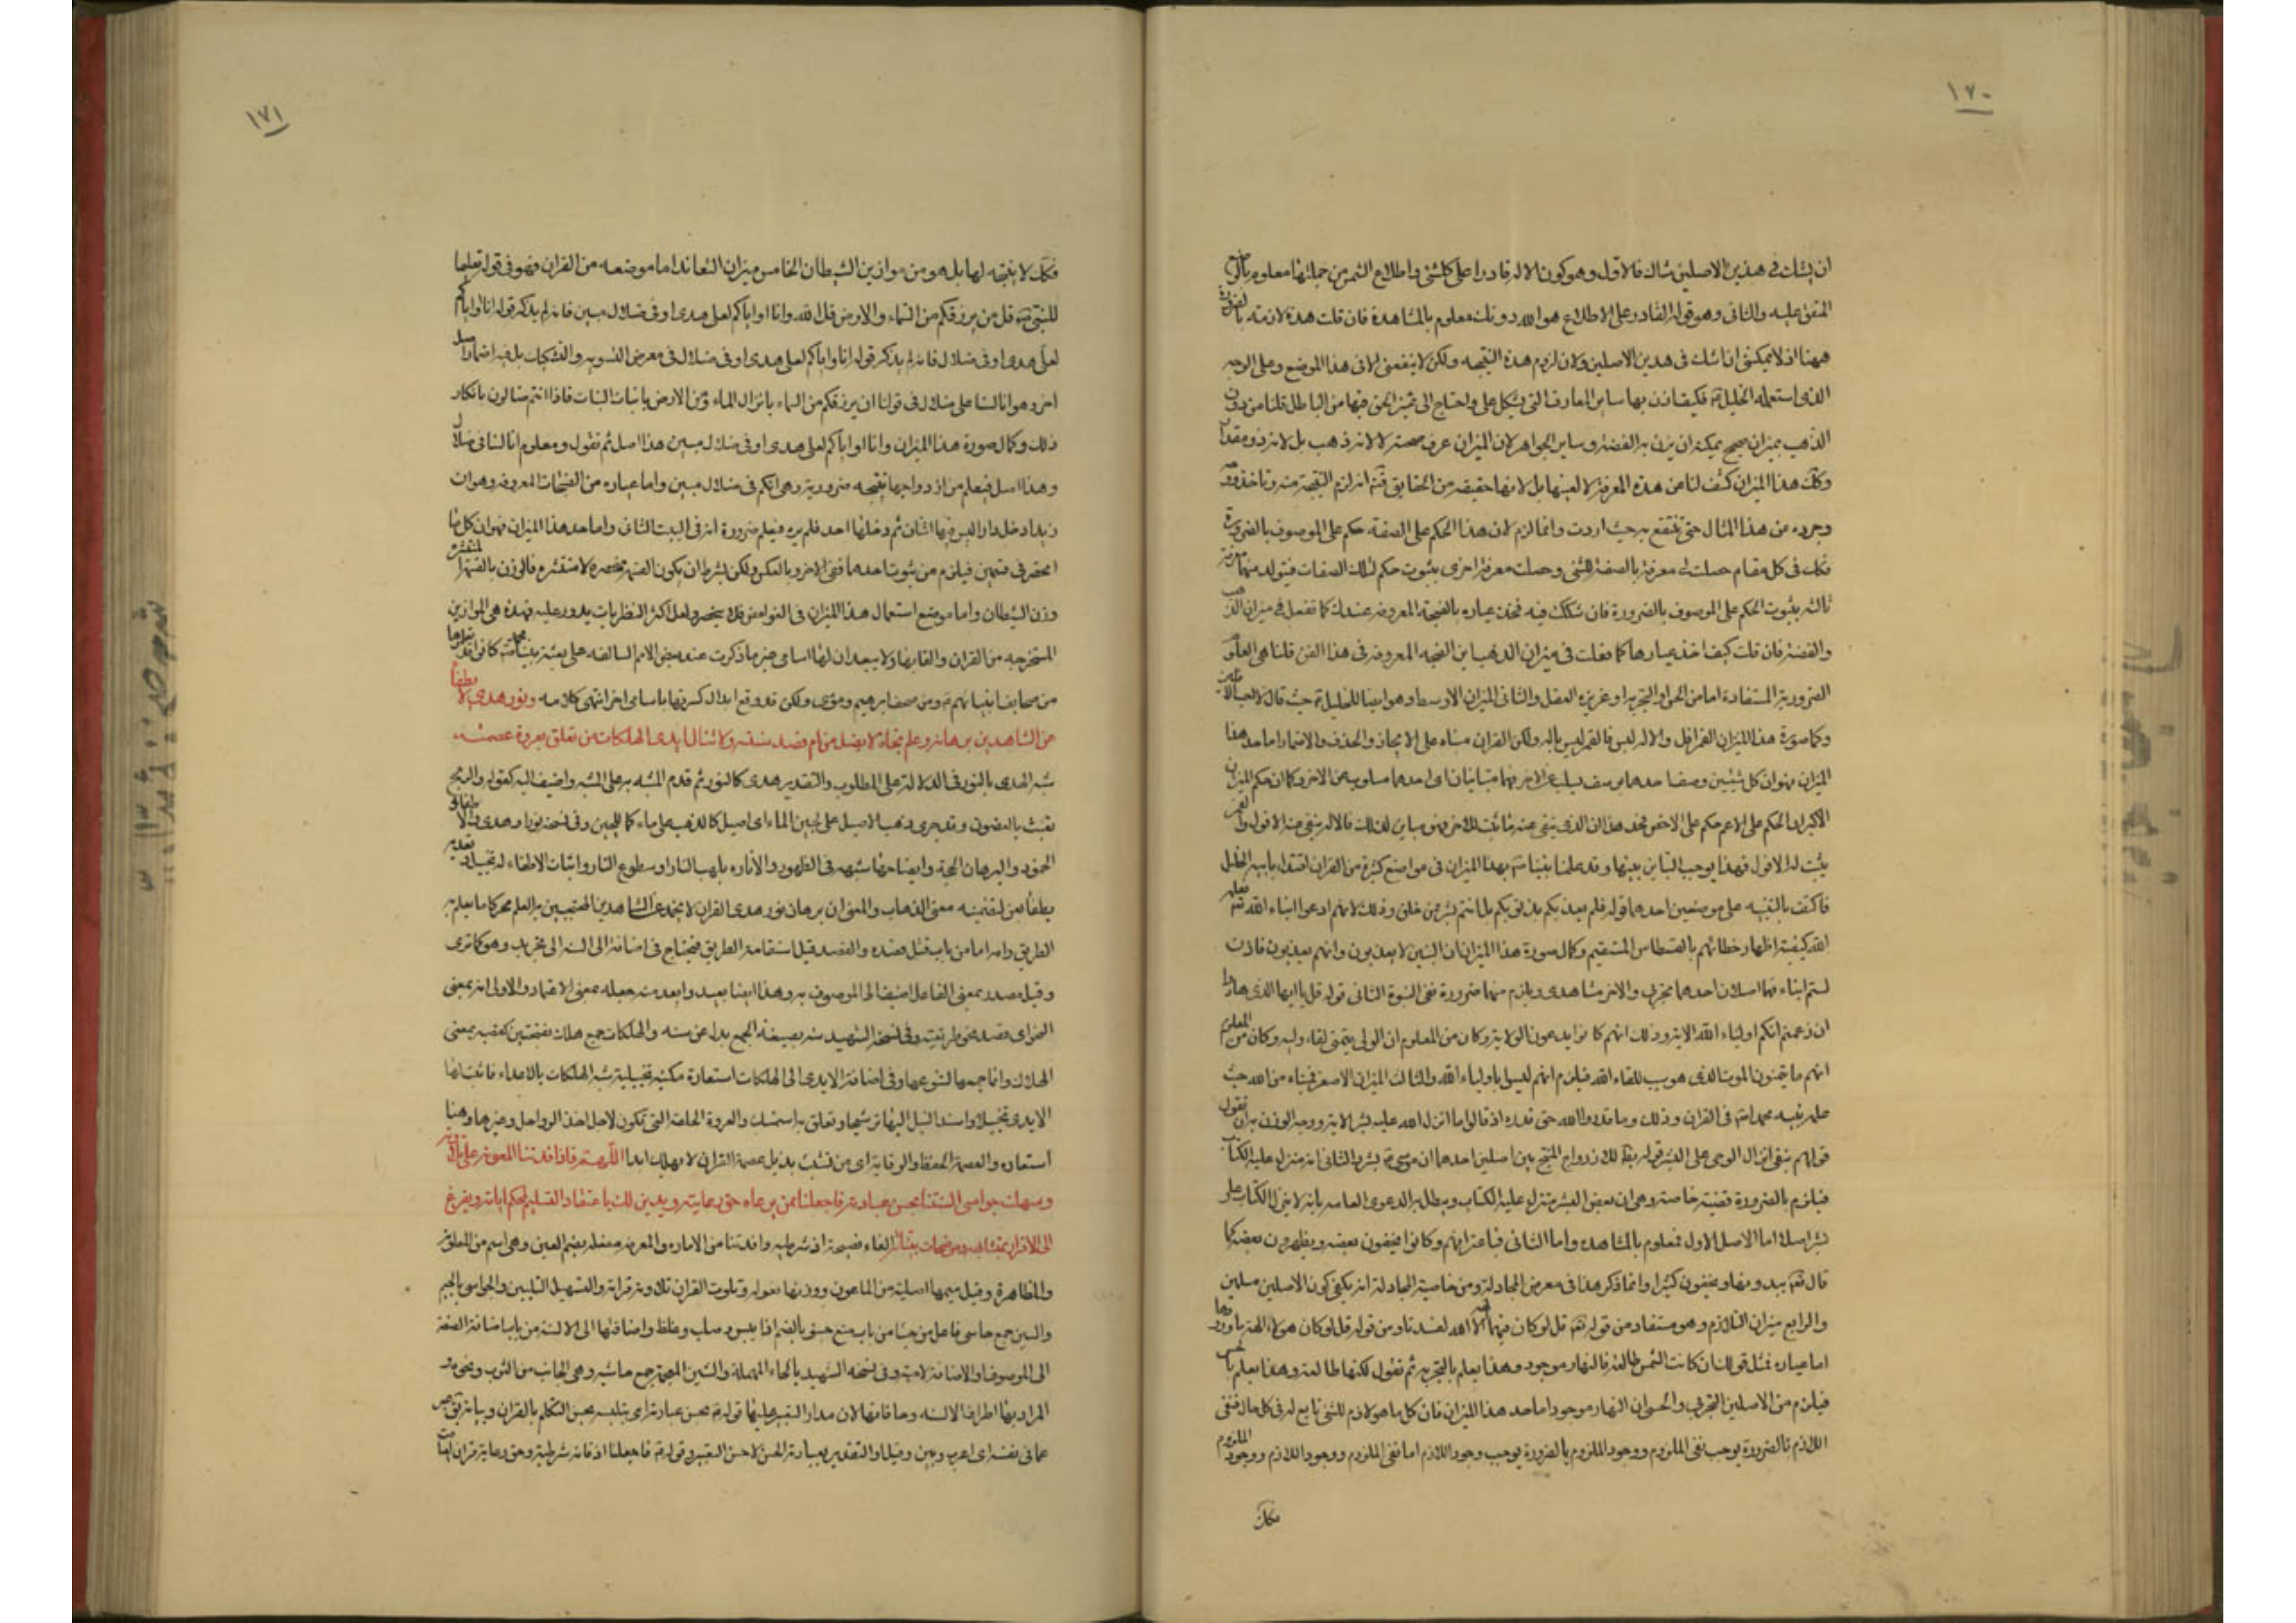 ١٧٠
ان يشك فى هذين الاصلين شاك فالاول وهو كون الاله قادرا على كلشئ واطلاع الشمس من جملتها معلوم بالوضع
المتفق عليه والثانى وهو قوله القادر على الاطلاع هو الله دونك معلوم بالمشاهدة فان قلت هذه لازمته بالضرورة
ههنا اذ لا يمكننى ان اشك فى هذين الاصلين ولا ان لزوم هذه النتيجه ولكن لا ينفعنى الا فى هذا الموضع وعلى الوجه
الذى استعمله الخليل ع فكيف ازن بها ساير المعارف التى يشكل على واحتاج الى تميز الحق فيها من الباطل قلنا من وزن
الذهب بميزان صحيح يمكنه ان يزن به الفضة وساير الجواهر لان الميزان عرف صحته لا لانه ذهب بل لانه ذو مقدار
وكك هذا الميزان كشف لنا عن هذه المعرفة لا لعينها بل لانها حقيقه من الحقايق فنتامل انه لزم النتيجة منه وناخذ روحه
وجرده من هذا المثال حتى تنتفع به حيث اردت وانما لزم لان هذا الحكم على الصفة حكم على الموصوف بالضرورة
فكك فى كل مقام حصلت لى معرفة بالصفة للشئ وحصلت معرفة اخرى بثبوت حكم لتلك الصفات فيتولد منهما معرفة
ثالثه بثبوت الحكم على الموصوف بالضرورة فان شككت فيه فخذ عياره بالصنجة المعروفه عندك كما تفعل فى ميزان الذهب
والفضة فان قلت كيف اخذ عيارها كما فعلت فى ميزان الذهب اين الصنجه المعروفه فى هذا الفن قلنا هى العلوم
الضرورية المستفادة اما من الحس او التجربه او غريزه العقل والثانى الميزان الاوسط وهو ايضا للخليل ع حيث قال لا احب الافلين
وكمال صورة هذا الميزان القمر افل والاله ليس بافل فالقمر ليس باله ولكن القران مبناه على الايجاز والحذف والاضمار اما حد هذا
الميزان فهو ان كل شيئين وصف احدهما بوصف يسلب عن الاخر فهما متباينان اى احدهما مسلوب عن الاخر وكما ان حكم الميزان
الاكبر ان الحكم على الاعم حكم على الاخص فحد هذا ان الذى ينفى عنه ما ثبت للاخر فهو مباين لذلك فالاله ينفى عنه الافول والقمر
يثبت له الافول فهذا يوجب التباين بينهما وقد علمنا نبينا ص بهذا الميزان فى مواضع كثيرة من القران اقتداء بابيه الخليل
فاكتف بالتنبيه على موضعين احدهما قوله فلم يعذبكم بذنوبكم بل انتم بشر ممن خلق وذلك لانهم ادعوا ابناء الله فعلمه
الله كيفية اظهار خطائهم بالقسطاس المستقيم وكمال صورة هذا الميزان ان البنين لا يعذبون وانهم يعذبون فاذن
لستم ابناء فهما اصلان احدهما تجربى والاخر مشاهدى ويلزم منهما ضرورة نفى البنوة الثانى قوله قل يا ايها الذين هادوا
ان زعمتم انكم اولياء الله الاية وذلك انهم كانوا يدعون الولاية وكان من المعلوم ان الولى يتمنى لقاء وليه وكان من المعلوم
انهم ما يتمنون الموت الذى هو سبب للقاء الله فيلزم انهم ليسوا باولياء الله والثالث الميزان الاصغر فبناه من الله حيث
علم نبيه محمد ص فى القران وذلك وما قدروا الله حق قدره اذ قالوا ما انزل الله عليه بشر الاية ووجه الوزن به ان نقول
قولهم بنفى انزال الوحى على البشر قول باطل للازدواج المنتج بين اصلين احدهما ان موسى ع بشر والثانى انه منزل عليه الكتاب
فيلزم بالضرورة قضية خاصة وهى ان بعض البشر منزل عليه الكتاب ويبطل به الدعوى العامه بانه لا ينزل الكتاب على
بشر اصلا اما الاصل الاول فمعلوم بالمشاهده واما الثانى فباعترافهم وكانوا يخفون بعضه ويظهرون بعضه كما
قال تع يبدونها ويخفون كثيرا وانما ذكر هذا فى معرض المجادلة ومن خاصية المجادلة انه يكفى كون الاصلين مسلمين
والرابع ميزان التلازم وهو مستفاد من قوله تع قل لو كان فيهما الهة الا الله لفسدتا ومن قوله قل لو كان هولاء الهة ما وردوها
اما عياره فمثل قولنا ان كانت الشمس طالعة فالنهار موجود وهذا يعلم بالتجربه ثم نقول لكنها طالعة وهذا يعلم بالحس
فيلزم من الاصلين التجربى والحسى ان النهار موجود اما حد هذا الميزان فان كل ما هو لازم للشئ تابع له فى كل حال فنفى
اللازم بالضرورة يوجب نفى الملزوم ووجود الملزوم بالضرورة يوجب وجود اللازم اما نفى الملزوم ووجود اللازم
فكك
١٧١
فكك لا نتيجه لها بل هو من موازين الشيطان الخامس ميزان التعاند اما موضعه من القران فهو فى قوله تعليما
للنبى ص قل من يرزقكم من السماء والارض قل الله وانا او اياكم لعلى هدى او فى ضلال مبين فانه لم يذكر قوله انا او اياكم
لعلى هدى او فى ضلال فانه لم يذكر قوله انا او اياكم لعلى هدى او فى ضلال فى معرض التسويه والتشكيك بل فيه اضمار اصل
اخر وهو انا لسنا على ضلال فى قولنا ان يرزقكم من السماء بانزال الماء ومن الارض بانبات النبات فاذا انتم ضالون بانكار
ذلك وكمال صورة هذا الميزان وانا او اياكم لعلى هدى او فى ضلال مبين هذا اصل ثم نقول ومعلوم انا لسنا فى ضلال
وهذا اصل فيعلم من ازدواجهما نتيجه ضرورية وهى انكم فى ضلال مبين واما عياره من الصنجات المعروفه وهو ان
زيدا دخل دارا ليس فيها اثنان ثم دخلها احد فلم يره فيعلم ضرورة انه فى البيت الثانى واما حد هذا الميزان فهو ان كل ما
انحصر فى قسمين فيلزم من ثبوت احدهما نفى الاخر وبالعكس ولكن بشرط ان يكون القسمة منحصرة لا منتشره فالوزن بالقسمة المنتشره
وزن الشيطان واما موضع استعمال هذا الميزان فى الغوامض فلا ينحصر ولعل اكثر النظريات يدور عليه فهذه هى الموازين
المستخرجه من القران والقابها ولا يبعد ان لها اسامى غير ما ذكرت عند بعض الامم السالفه على بعثة نبينا محمد ص كانوا قد تعلموها
من صحايف انبيائهم ع ومن صحف ابرهيم وموسى ولكن قد وقع ابدال كسوتها باسامى اخر انتهى كلامه ونور هدى لا يطفأ
عن الشاهدين برهانه وعلم نجاة لا يضل من ام قصد سنته ولا تنال ايدى الهلكات من تعلق بعروة عصمته
شبه الهدى بالنور فى الدلالة على المطلوب والتقدير هدى كالنور ثم قدم المشبه به على المشبه واضيف اليه كقوله والريح
تعبث بالغصون وقد جرى ذهب الاصيل على لجين الماء اى اصيل كالذهب على ماء كاللجين وفى نسخه نورا وهدى والاطفاء
الخمود والبرهان الحجة وايضاحها شبهه فى الظهور والاناره بلهب النار او سطوع النار واثبات الاطفاء له تخييل وتعديه
يطفأ بعن لتضمينه معنى الذهاب والمعنى ان برهان نور هدى القران لا يخمد عن الشاهدين المحتجبين به العلم محركا ما يعلم به
الطريق وامه اما من باب قتل قصده والقصد قيل استقامة الطريق فيحتاج فى اضافة الى السنه الى تجريد وهو كما ترى
وقيل مصدر بمعنى الفاعل اضيف الى الموصوف به وهذا ايضا بعيد وابعد منه جعله بمعنى الاعتماد والاولى انه بمعنى
النحو اى قصد نحو طريقته وفى نسخة الشهيد سننه بصيغة الجمع بدل عن سنه والهلكات جمع هلكة بفتحتين كقصبه بمعنى
الهلاك وانما جمعها لتنوعها وفى اضافة الايدى الى الهلكات استعارة مكنيه تخييلية شبه الهلكات بالاعداء فاثبت لها
الايدى تخييلا واسند النيل اليها ترشيحا وتعلق به استمسك والعروة الحلقة التى تكون لاجل اخذ الرواحل وغيرها وهنا
استعاره والعصمة الحفظ والوقاية اى من تشبث بذيل عصمة القران لا يهلك ابدا اللهم فاذ افدتنا المعونة على تلاوته
وسهلت جواسى السنتنا بحسن عبارته فاجعلنا ممن يرعاه حق رعايته ويدين لك باعتقاد التسليم لمحكم اياته ويفزع
الى الاقرار بمتشابهه وموضحات بيناته الفاء فصيحة اذ شرطيه وافدتنا من الافاده والمعونه مفعله بضم العين وهى اسم من المعاونة
والمظاهرة وقيل ميمها اصلية من الماعون ووزنها فعوله وتلوت القران تلاوته قراته والتسهيل التليين والجواسى بالجيم
والسين جمع جاسى فاعل من جسا من باب منع جسوا بالضم اذا يبس وصلب وغلظ واضافتها الى الالسنة من باب اضافة الصفة
الى الموصوف او الاضافة لامية وفى نسخه الشهيد بالحاء المهملة والشين المعجمة جمع حاشيه وهى الجانب من الثوب ونحوه
المراد بها اطراف الالسنه وحافاتها لان مدار التعبير عليها قوله ع بحسن عبارته اى بتلبسه بحسن التكلم بالقران وبيانه يق عبر
عما فى نفسه اى اعرب وبين وقيل والتقدير بعبارته الحسن لاحسن التعبير وقوله ع فاجعلنا اذ فانه شرطية وحق رعايته